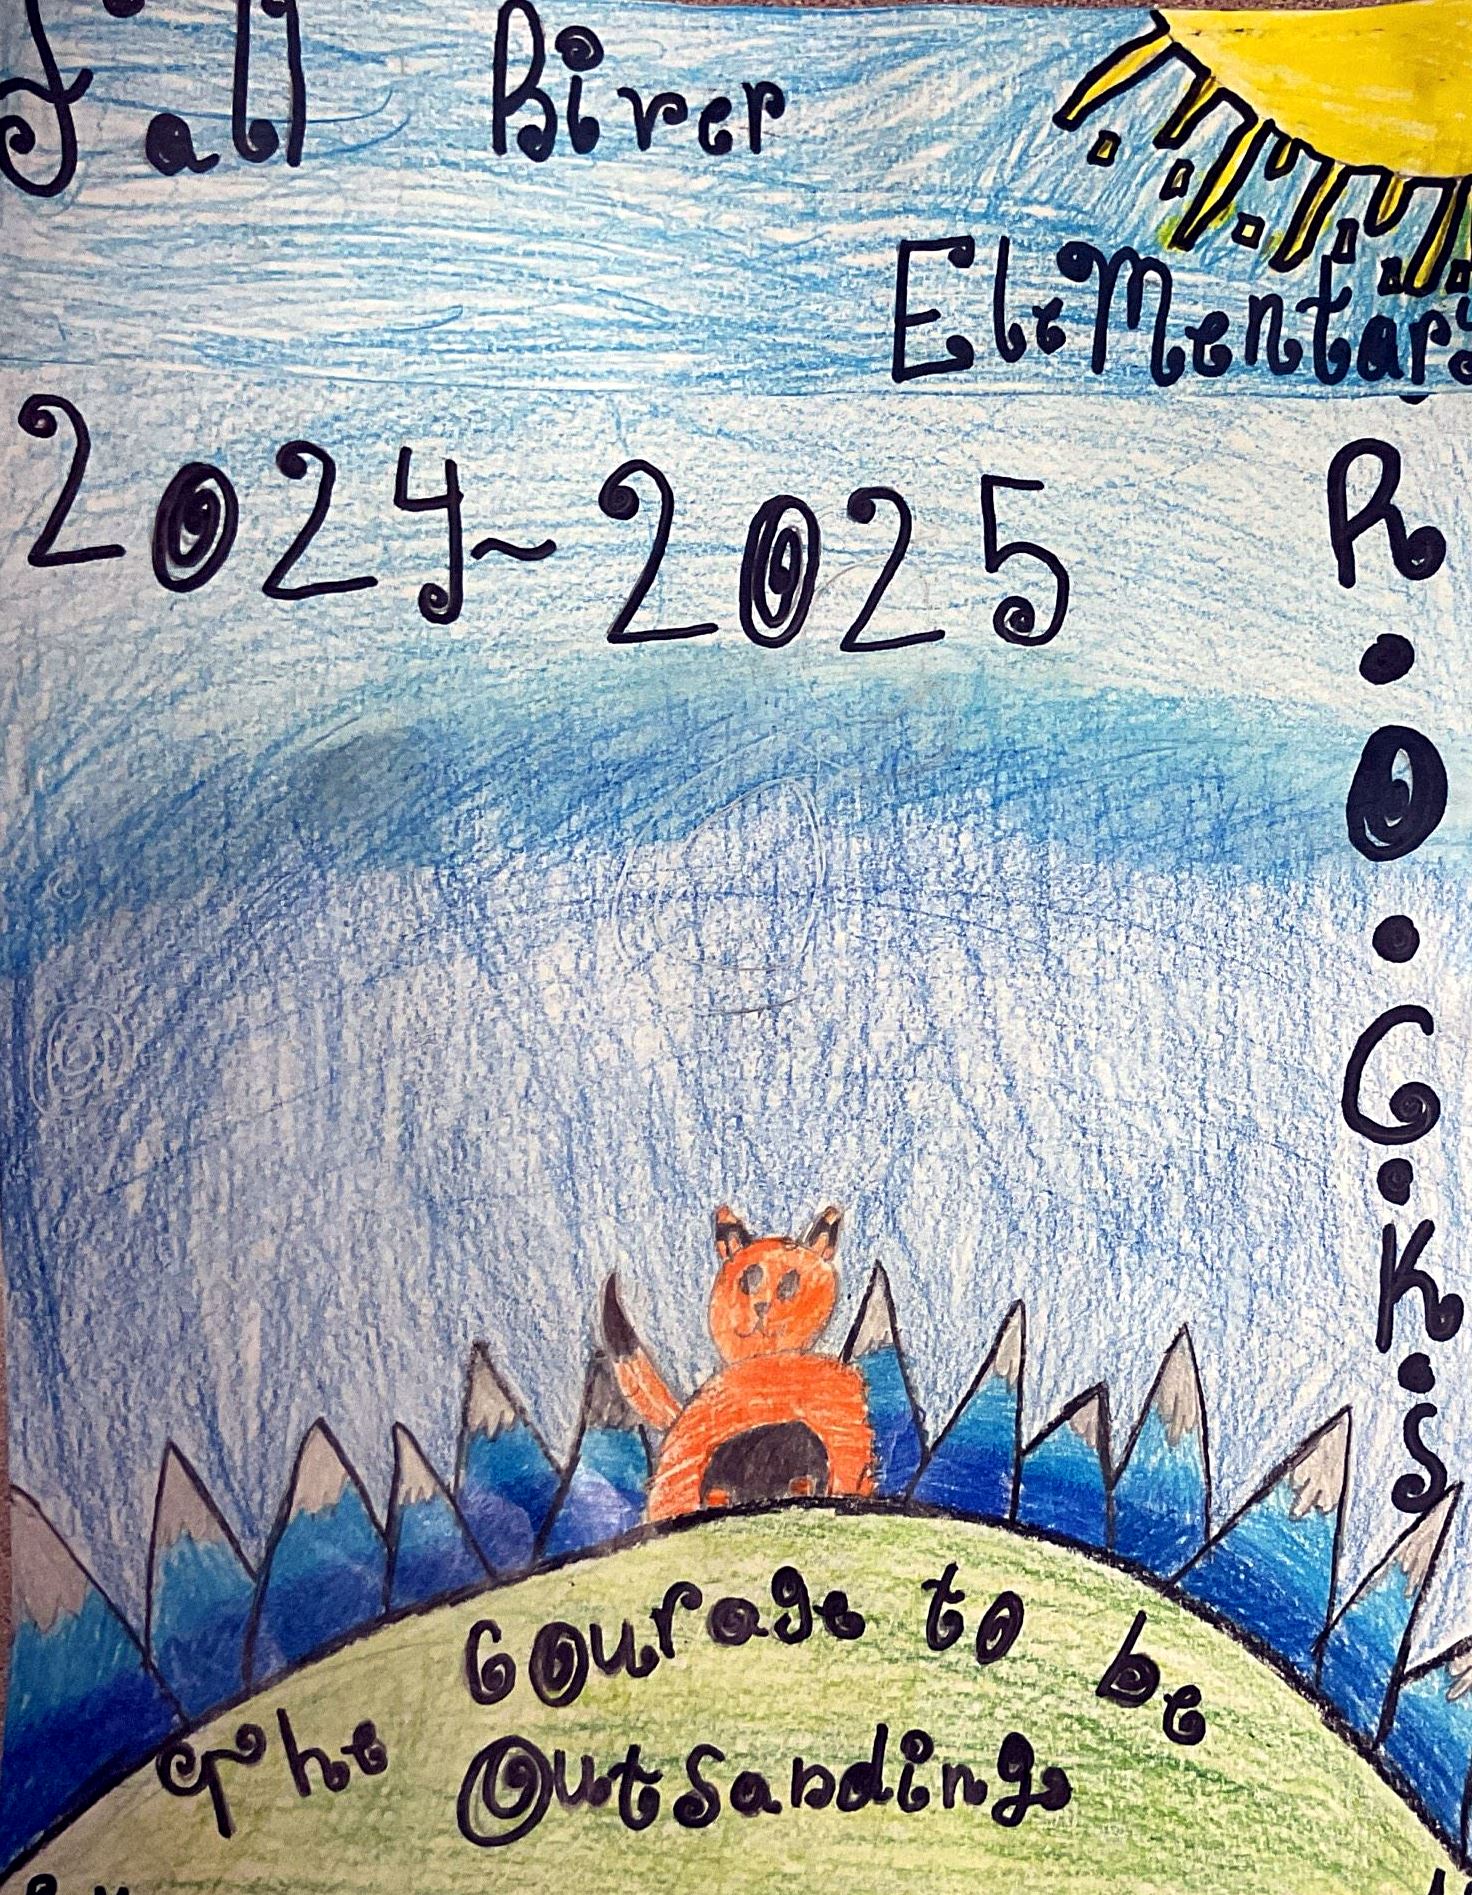 Fall River
Elementary
2024~2025
R.O.C.K.S
The Courage to be
Outsanding